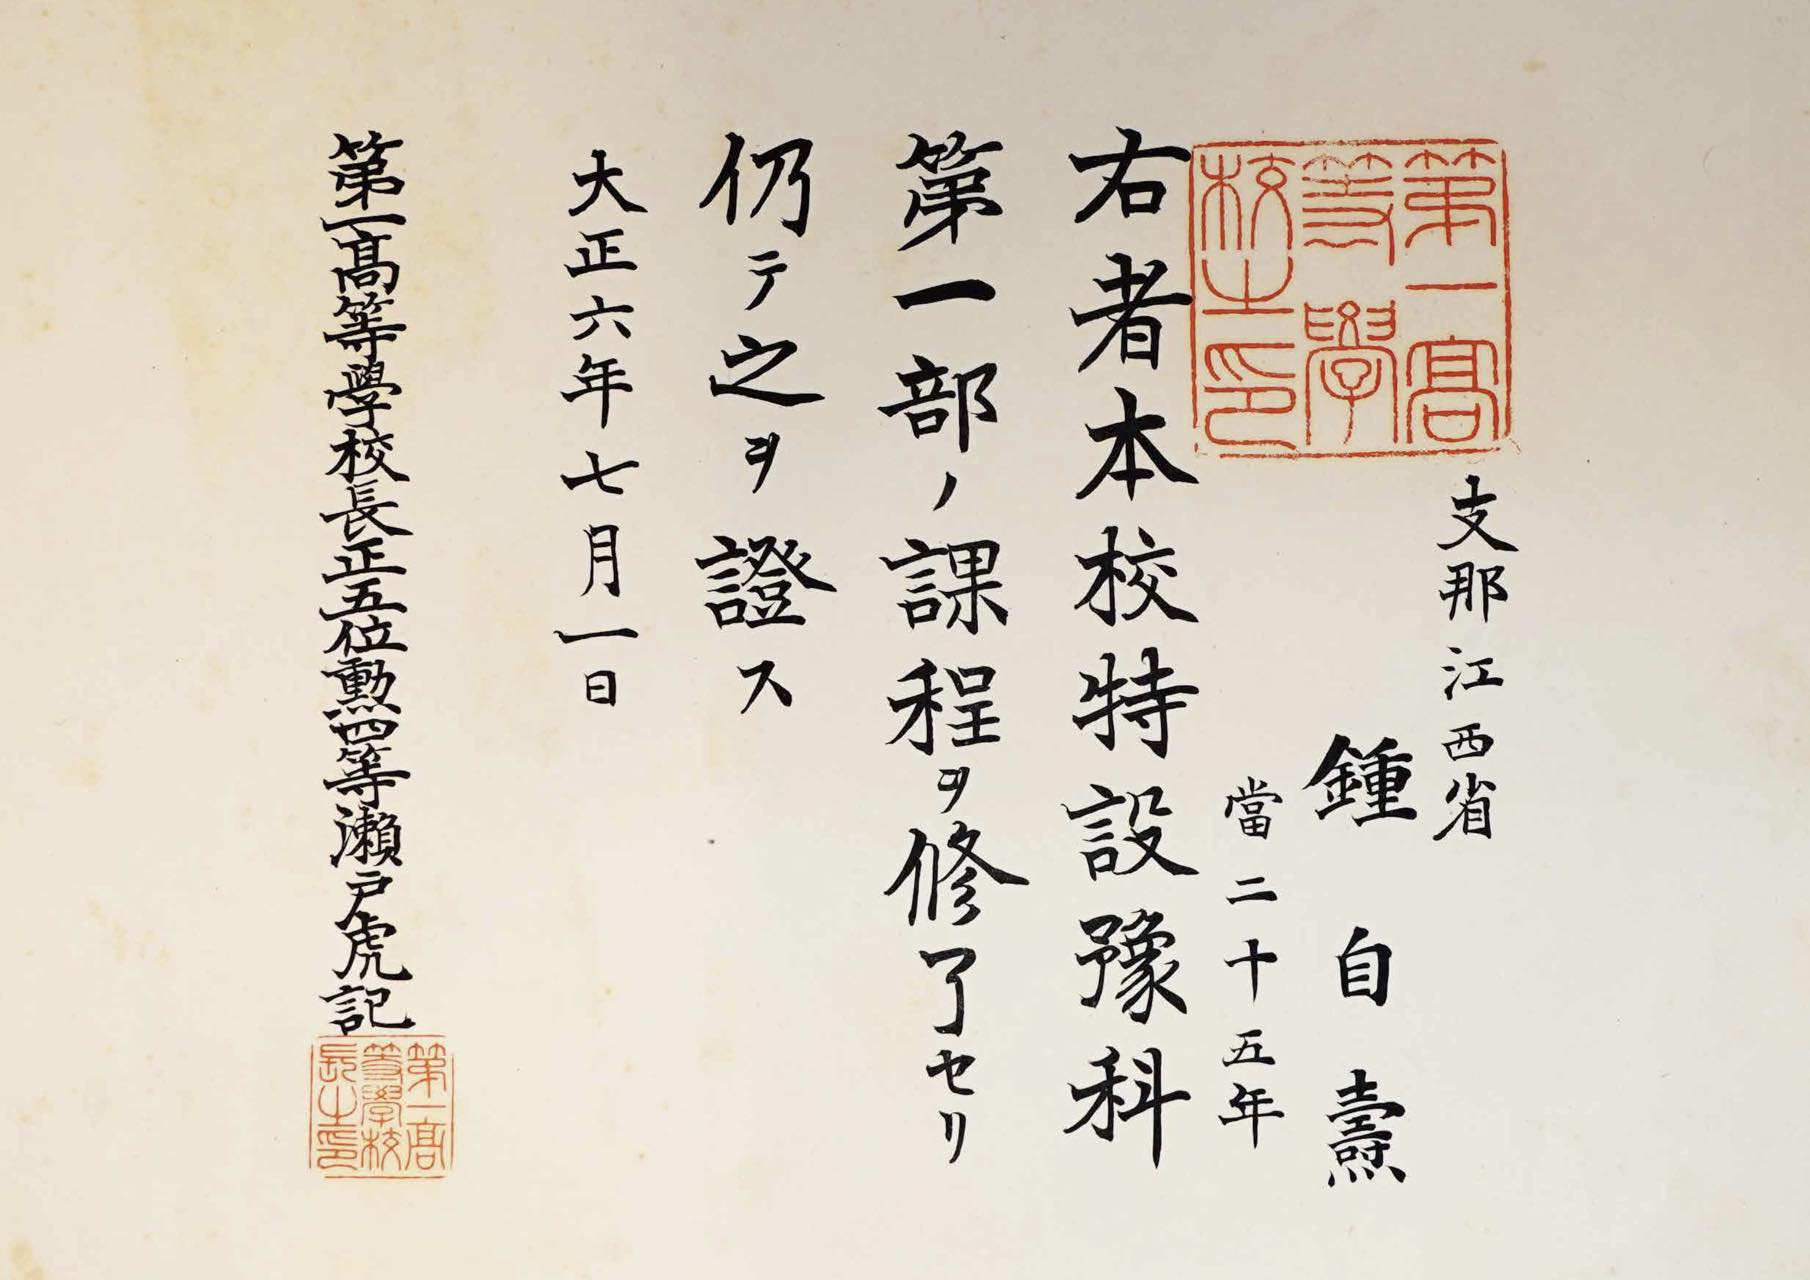 第一高
等學
校之印
支那江西省
鍾自燾
當二十五年
右者本校特設豫科
第一部ノ課程ヲ修了セリ
仍テ之ヲ證ス
大正六年七月一日
第一高等學校長正五位勲四等瀨戸虎記
第一高
等學校
長之印